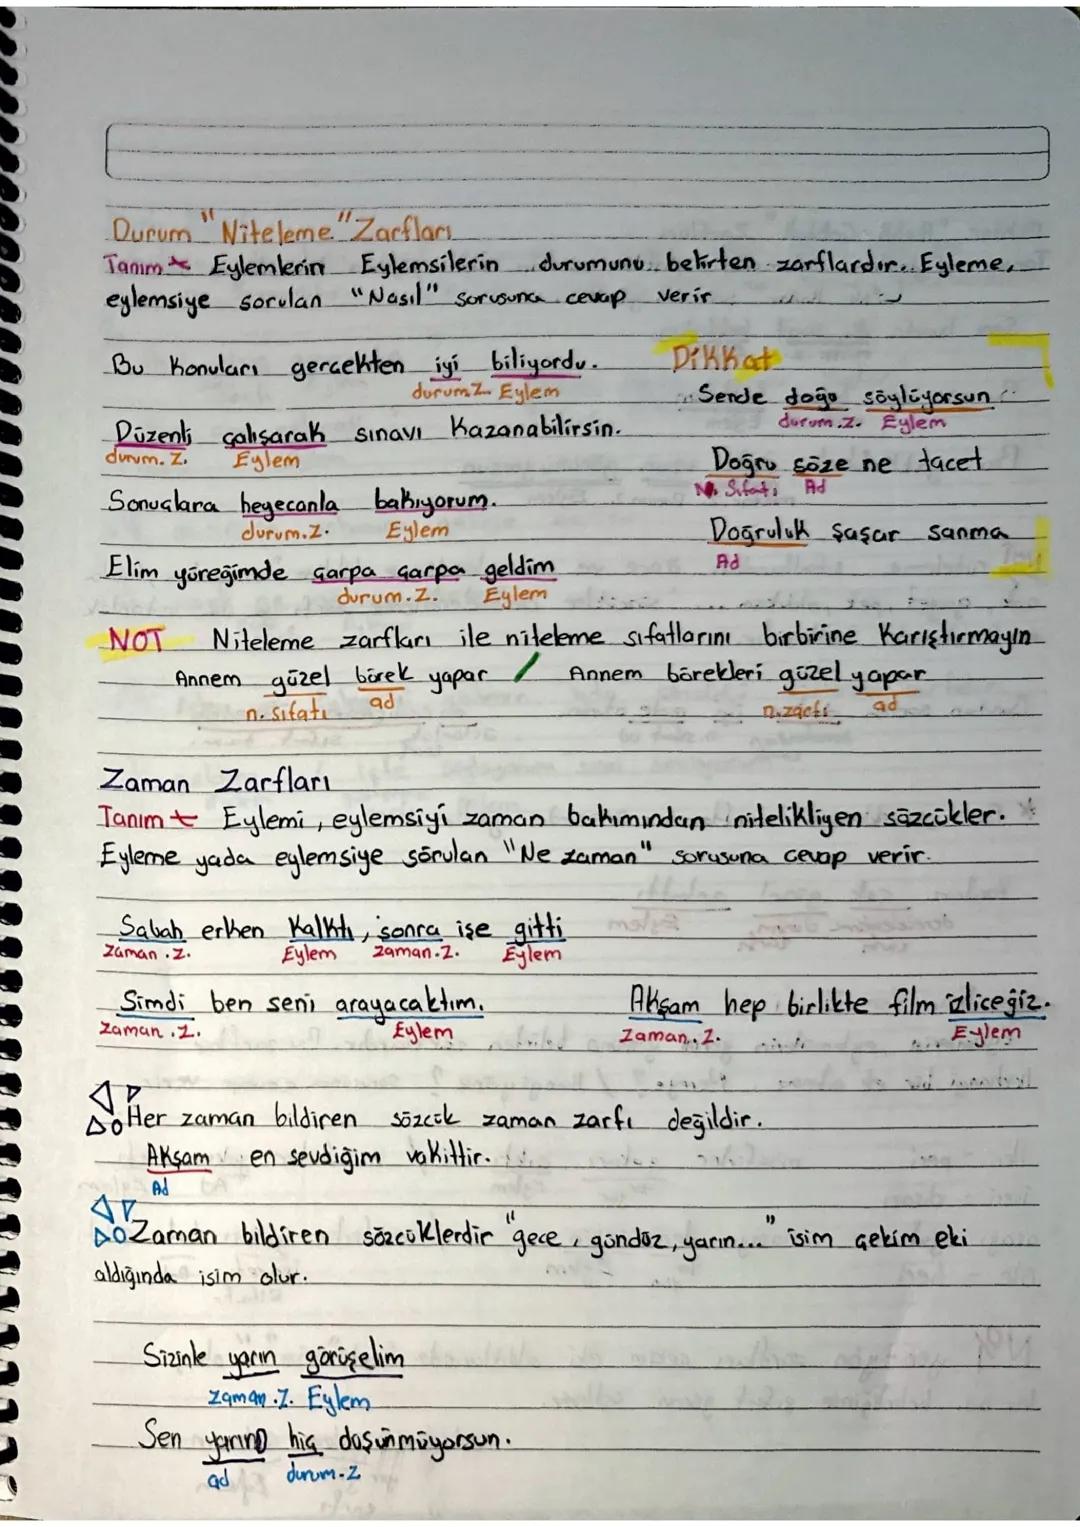 Durum "Niteleme" Zarfları
Tanım Eylemlerin Eylemsilerin durumunu belirten zarflardır. Eyleme,
eylemsiye sorulan "Nasıl" sorusuna cevap verir
Bu Konuları gercekten iyi biliyordu.
durum.Z. Eylem
Düzenli çalışarak sınavı Kazanabilirsin.
durum.Z. Eylem
Sonuçlara heyecanla bakıyorum.
durum.Z. Eylem
Elim yüreğimde çarpa çarpa geldim
durum.Z. Eylem
Dikkat
Sende doğu söylüyorsun
durum.Z. Eylem
Doğru söze ne tacet
N. Sıfatı Ad
Doğruluk şaşar sanma
Ad
NOT Niteleme zarfları ile niteleme sıfatlarını birbirine Karıştırmayın
Annem güzel börek yapar / Annem börekleri güzel yapar
n.sıfatı ad n.zarfı ad
Zaman Zarfları
Tanım Eylemi, eylemsiyi zaman bakımından nitelikliyen sözcükler.
Eyleme yada eylemsiye sorulan "Ne zaman" sorusuna cevap verir.
Sabah erken Kalktı, sonra işe gitti
Zaman.Z. Eylem Zaman.Z. Eylem
Simdi ben seni arayacaktım.
Zaman.Z. Eylem
Akşam hep birlikte film izliceğiz.
Zaman.Z. Eylem
Her zaman bildiren sözcük zaman zarfı değildir.
Akşam en sevdiğim vakittir.
Ad
Zaman bildiren sözcüklerdir "gece, gündüz, yarın..." isim çekim eki
aldığında isim olur.
Sizinle yarın görüşelim
Zaman.Z. Eylem
Sen yarını hiç düşünmüyorsun.
ad durum.Z